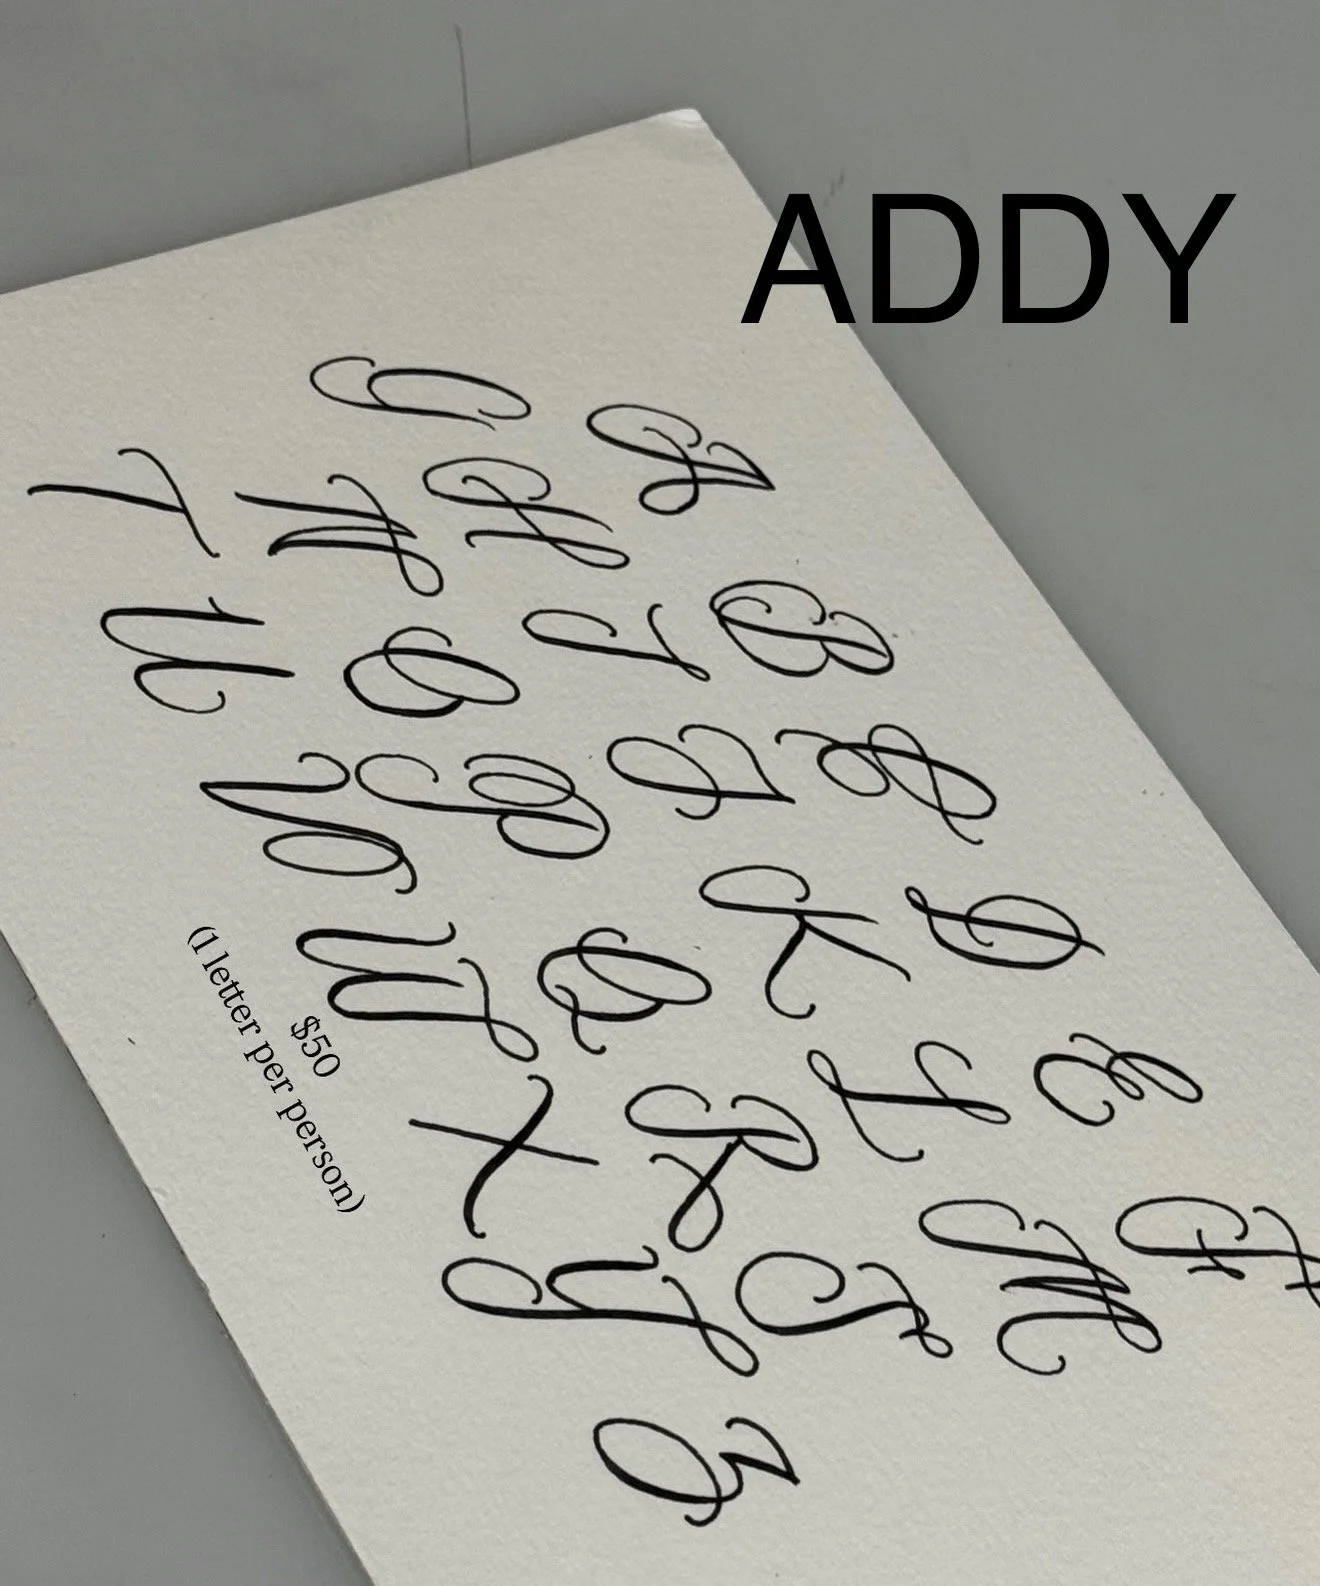 ADDY
A B C D E F
G H I J K L M
N O P Q R S
T U V W X Y Z
$50
(1 letter per person)